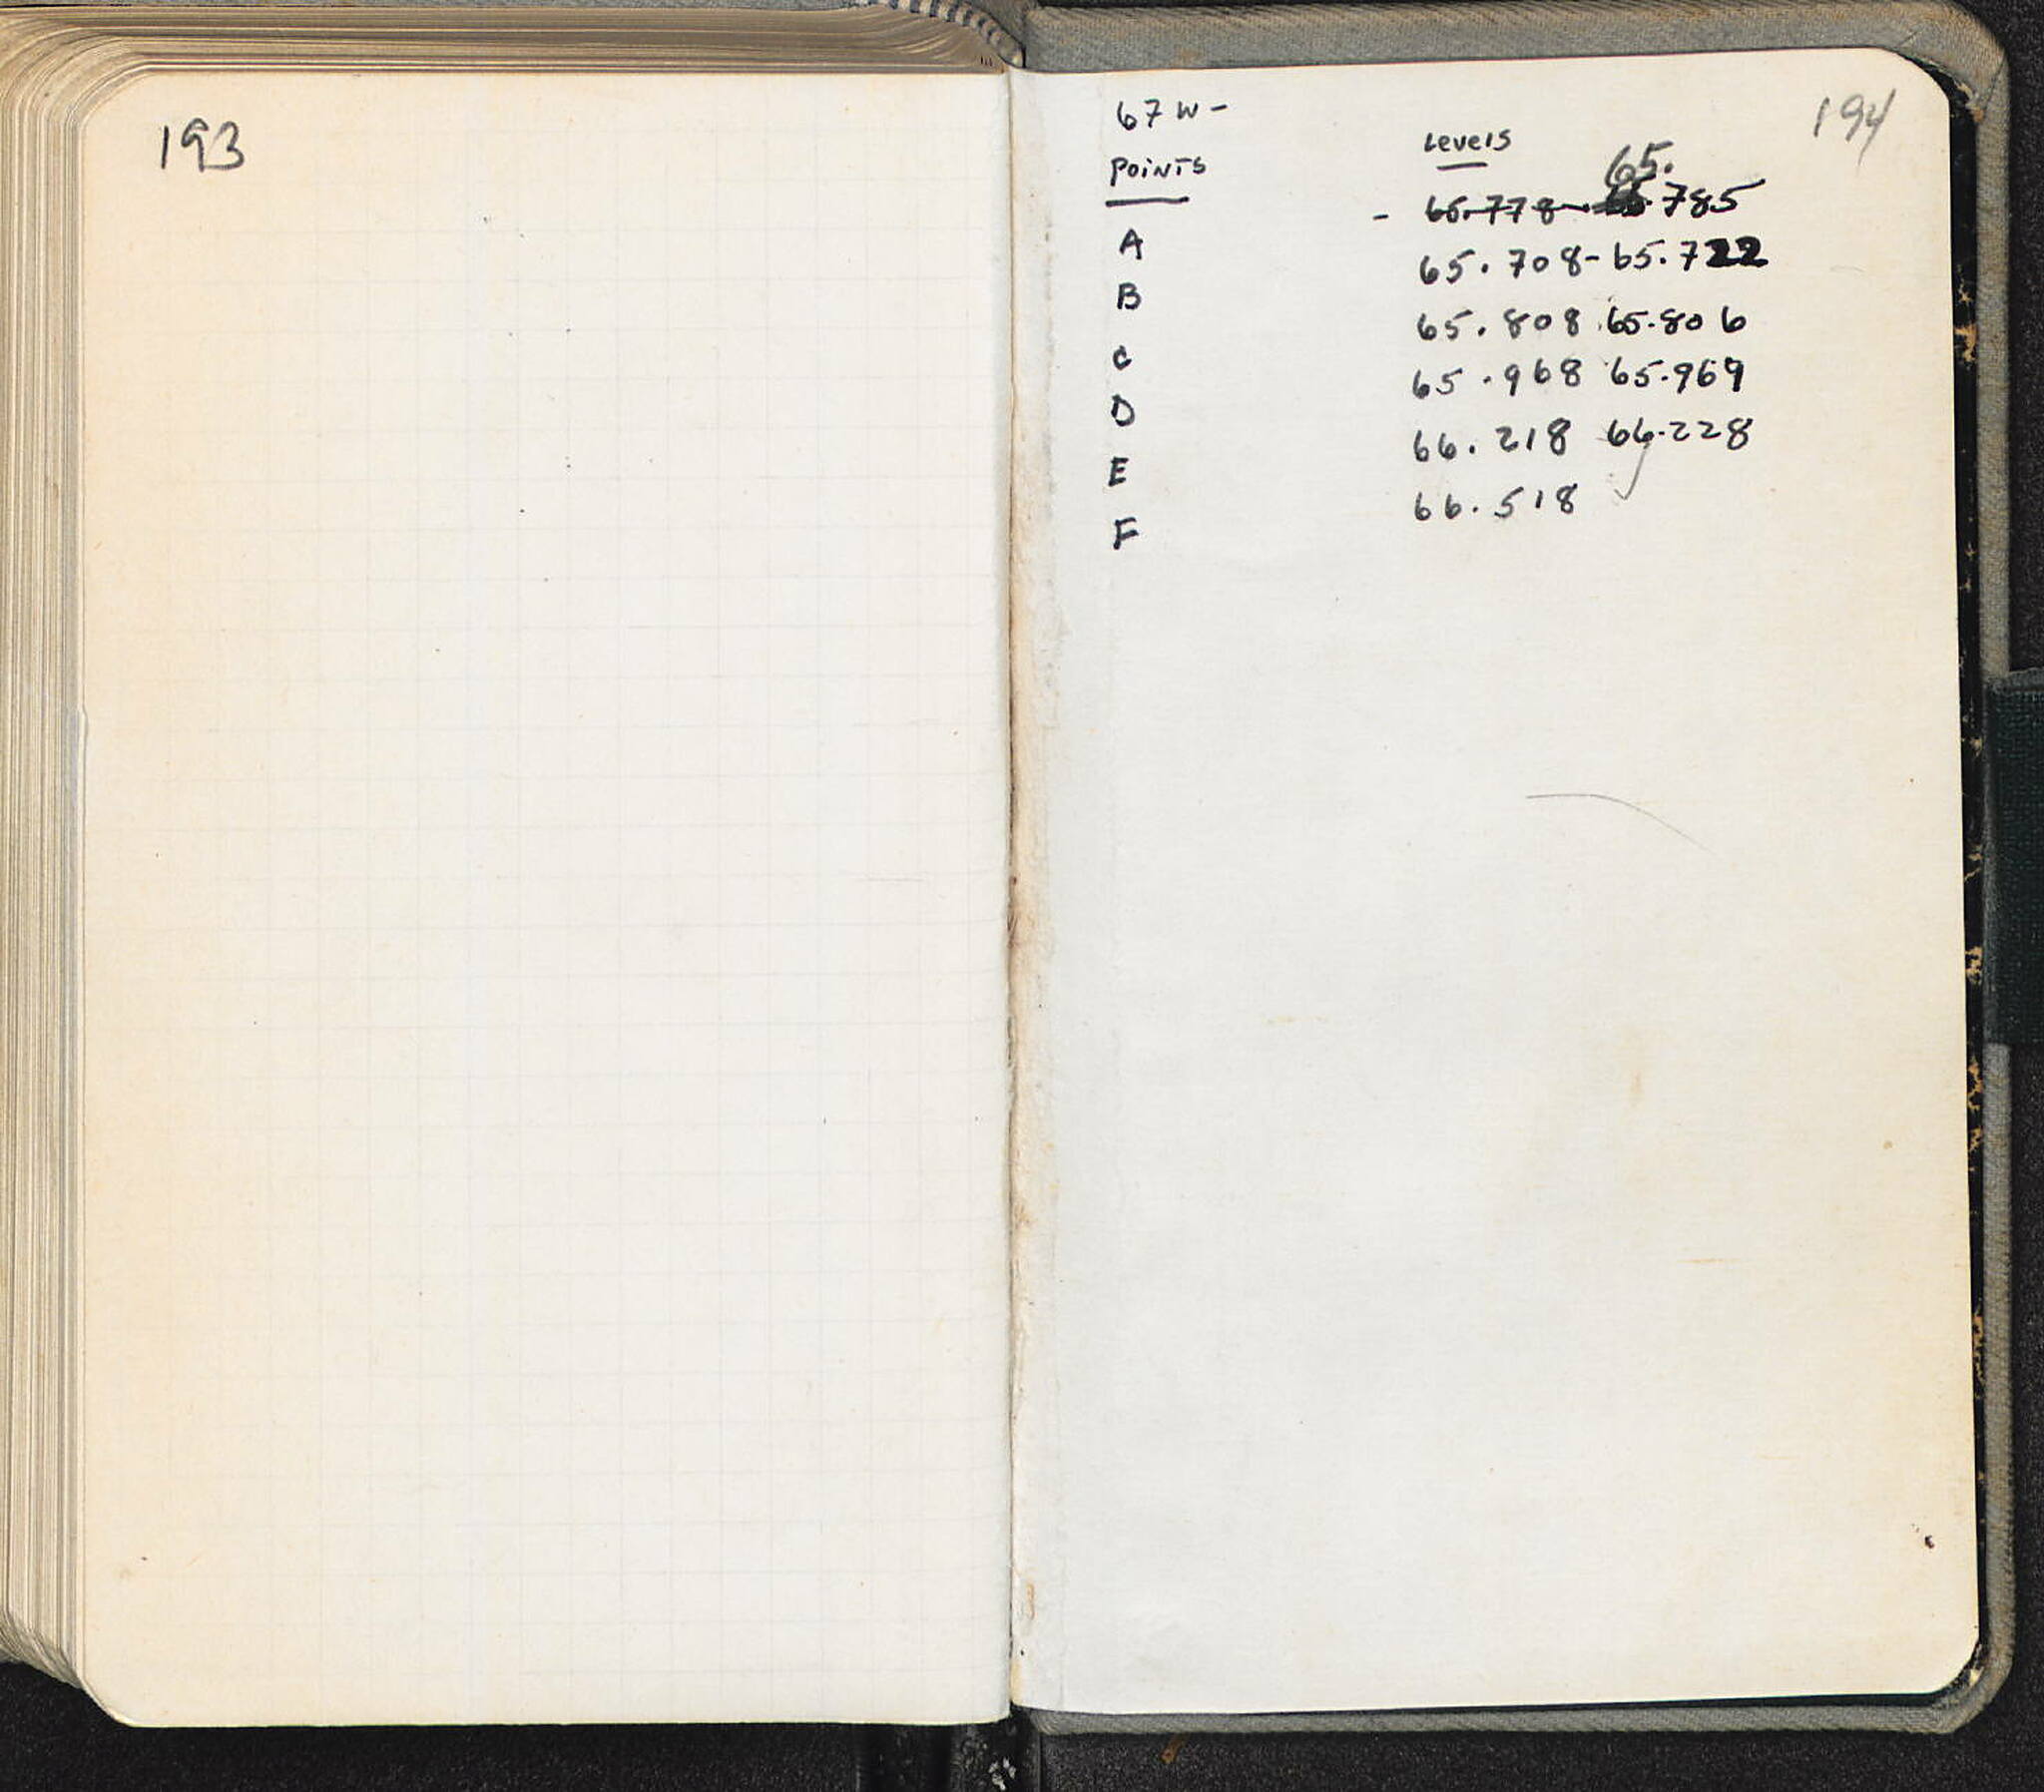 193
194
67 W -
Points Levels
65.
- 65.778 - .785
A 65.708 - 65.722
B 65.808 65.806
C 65.968 65.969
D 66.218 66.228
E 66.518
F